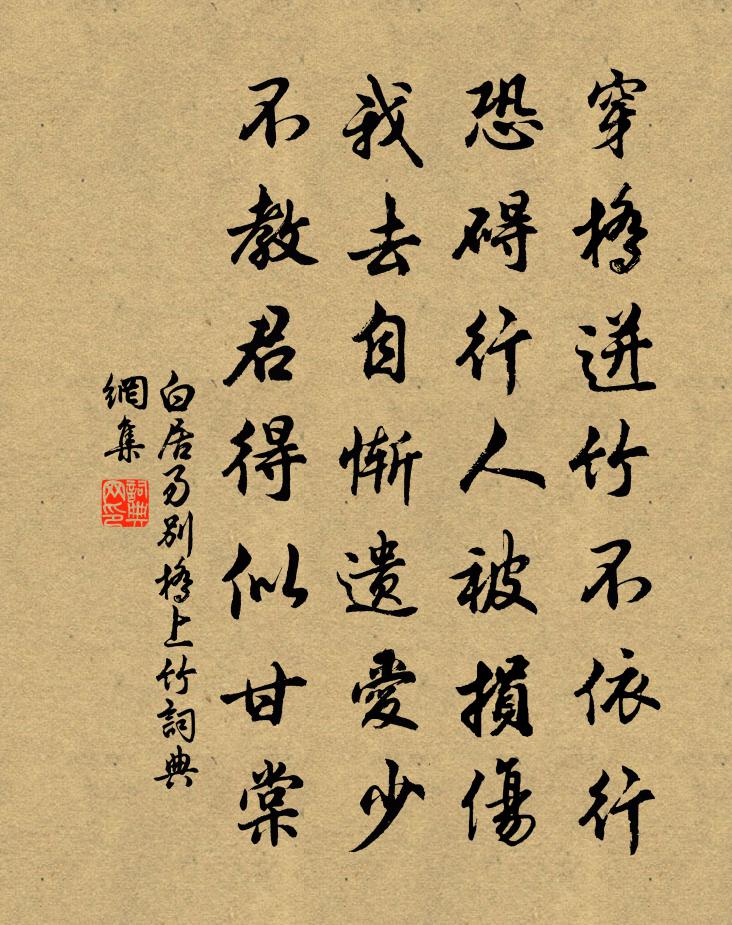 穿橋迸竹不依行
恐碍行人被損傷
我去自慚遺愛少
不教君得似甘棠
白居易別橋上竹詞典
網集
詞典网印